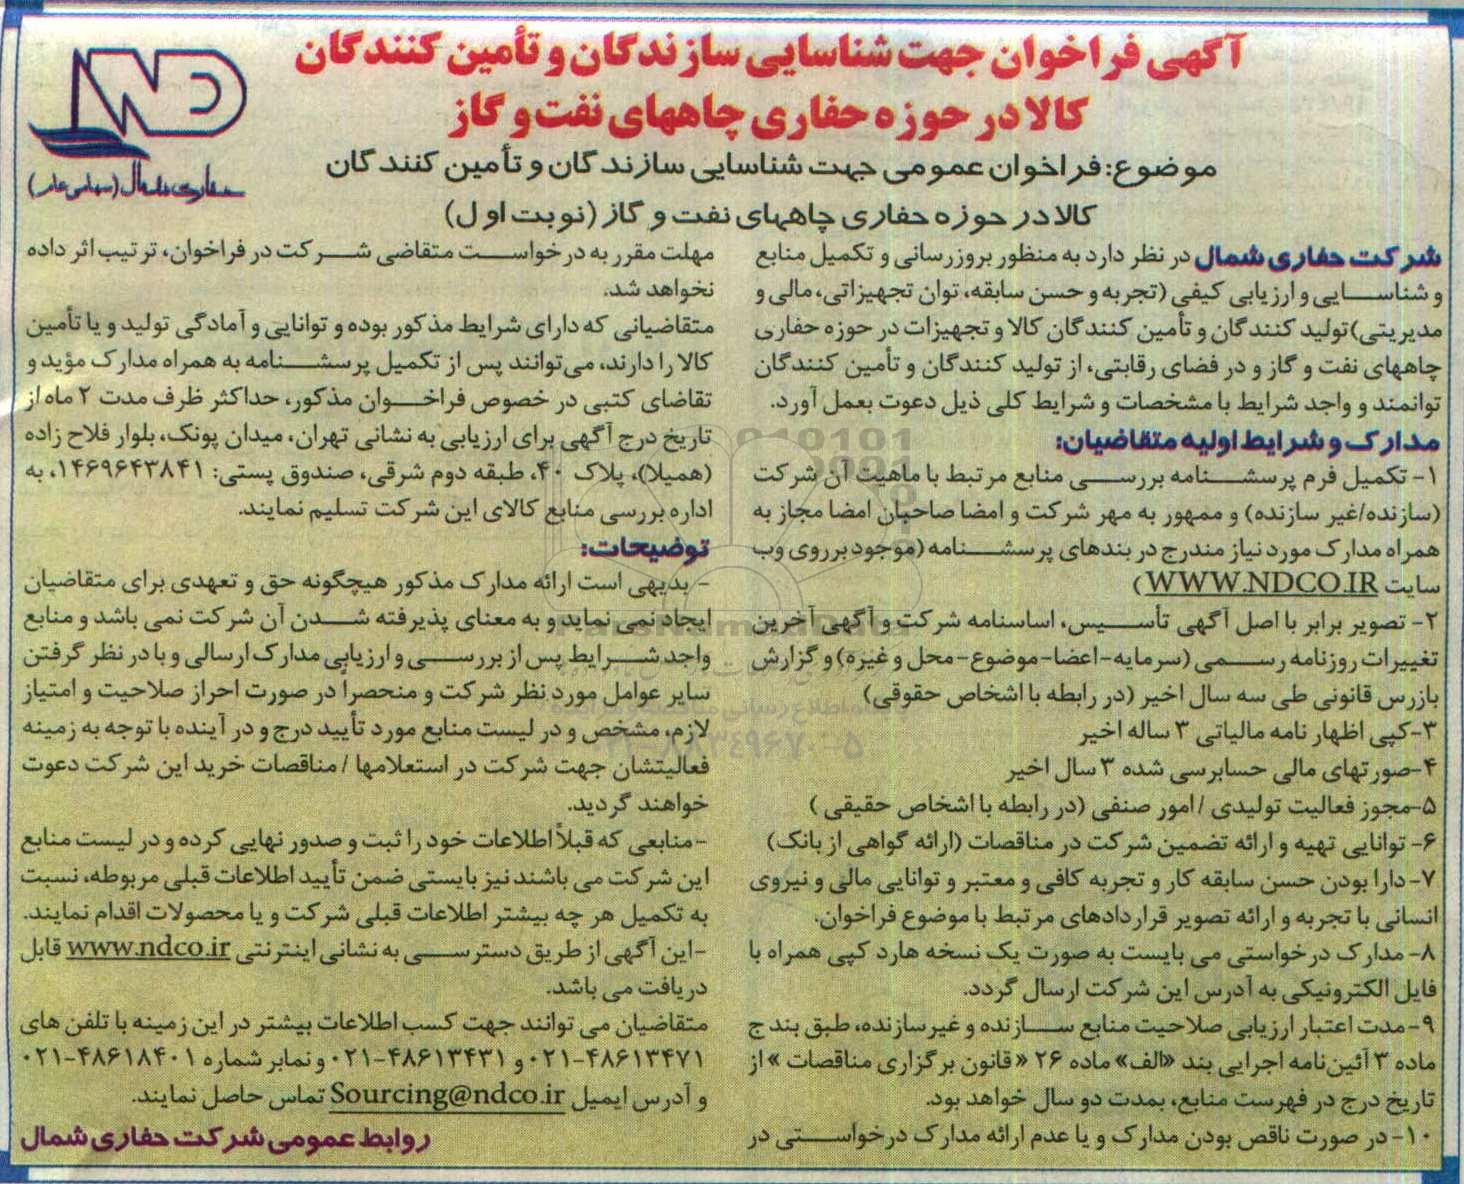 آگهی فراخوان جهت شناسایی سازندگان و تأمین کنندگان
کالا در حوزه حفاری چاههای نفت و گاز
موضوع: فراخوان عمومی جهت شناسایی سازندگان و تأمین کنندگان
کالا در حوزه حفاری چاههای نفت و گاز (نوبت اول)
حفاری شمال (سهامی عام)
شرکت حفاری شمال در نظر دارد به منظور بروزرسانی و تکمیل منابع
و شناسایی و ارزیابی کیفی (تجربه و حسن سابقه، توان تجهیزاتی، مالی و
مدیریتی) تولید کنندگان و تأمین کنندگان کالا و تجهیزات در حوزه حفاری
چاههای نفت و گاز و در فضای رقابتی، از تولید کنندگان و تأمین کنندگان
توانمند و واجد شرایط با مشخصات و شرایط کلی ذیل دعوت بعمل آورد.
مدارک و شرایط اولیه متقاضیان:
۱- تکمیل فرم پرسشنامه بررسی منابع مرتبط با ماهیت آن شرکت
(سازنده/غیر سازنده) و ممهور به مهر شرکت و امضا صاحبان امضا مجاز به
همراه مدارک مورد نیاز مندرج در بندهای پرسشنامه (موجود بر روی وب
سایت WWW.NDCO.IR)
۲- تصویر برابر با اصل آگهی تأسیس، اساسنامه شرکت و آگهی آخرین
تغییرات روزنامه رسمی (سرمایه-اعضا-موضوع-محل و غیره) و گزارش
بازرس قانونی طی سه سال اخیر (در رابطه با اشخاص حقوقی)
۳-کپی اظهار نامه مالیاتی ۳ ساله اخیر
۴-صورتهای مالی حسابرسی شده ۳ سال اخیر
۵-مجوز فعالیت تولیدی / امور صنفی (در رابطه با اشخاص حقیقی )
۶- توانایی تهیه و ارائه تضمین شرکت در مناقصات (ارائه گواهی از بانک)
۷- دارا بودن حسن سابقه کار و تجربه کافی و معتبر و توانایی مالی و نیروی
انسانی با تجربه و ارائه تصویر قراردادهای مرتبط با موضوع فراخوان.
۸- مدارک درخواستی می بایست به صورت یک نسخه هارد کپی همراه با
فایل الکترونیکی به آدرس این شرکت ارسال گردد.
۹- مدت اعتبار ارزیابی صلاحیت منابع سازنده و غیرسازنده، طبق بند ج
ماده ۳ آئین‌نامه اجرایی بند «الف» ماده ۲۶ «قانون برگزاری مناقصات» از
تاریخ درج در فهرست منابع، بمدت دو سال خواهد بود.
۱۰- در صورت ناقص بودن مدارک و یا عدم ارائه مدارک درخواستی در
مهلت مقرر به درخواست متقاضی شرکت در فراخوان، ترتیب اثر داده
نخواهد شد.
متقاضیانی که دارای شرایط مذکور بوده و توانایی و آمادگی تولید و یا تأمین
کالا را دارند، می‌توانند پس از تکمیل پرسشنامه به همراه مدارک مؤید و
تقاضای کتبی در خصوص فراخوان مذکور، حداکثر ظرف مدت ۲ ماه از
تاریخ درج آگهی برای ارزیابی به نشانی تهران، میدان پونک، بلوار فلاح زاده
(همیلا)، پلاک ۴۰، طبقه دوم شرقی، صندوق پستی: ۱۴۶۹۶۴۳۸۴۱، به
اداره بررسی منابع کالای این شرکت تسلیم نمایند.
توضیحات:
- بدیهی است ارائه مدارک مذکور هیچگونه حق و تعهدی برای متقاضیان
ایجاد نمی نماید و به معنای پذیرفته شدن آن شرکت نمی باشد و منابع
واجد شرایط پس از بررسی و ارزیابی مدارک ارسالی و با در نظر گرفتن
سایر عوامل مورد نظر شرکت و منحصراً در صورت احراز صلاحیت و امتیاز
لازم، مشخص و در لیست منابع مورد تأیید درج و در آینده با توجه به زمینه
فعالیتشان جهت شرکت در استعلامها / مناقصات خرید این شرکت دعوت
خواهند گردید.
- منابعی که قبلاً اطلاعات خود را ثبت و صدور نهایی کرده و در لیست منابع
این شرکت می باشند نیز بایستی ضمن تأیید اطلاعات قبلی مربوطه، نسبت
به تکمیل هر چه بیشتر اطلاعات قبلی شرکت و یا محصولات اقدام نمایند.
-این آگهی از طریق دسترسی به نشانی اینترنتی www.ndco.ir قابل
دریافت می باشد.
متقاضیان می توانند جهت کسب اطلاعات بیشتر در این زمینه با تلفن های
۰۲۱-۴۸۶۱۳۴۷۱ و ۰۲۱-۴۸۶۱۳۴۳۱ و نمابر شماره ۰۲۱-۴۸۶۱۸۴۰۱
و آدرس ایمیل Sourcing@ndco.ir تماس حاصل نمایند.
روابط عمومی شرکت حفاری شمال